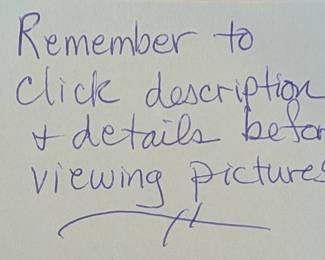 Remember to
click description
+ details befor
viewing pictures